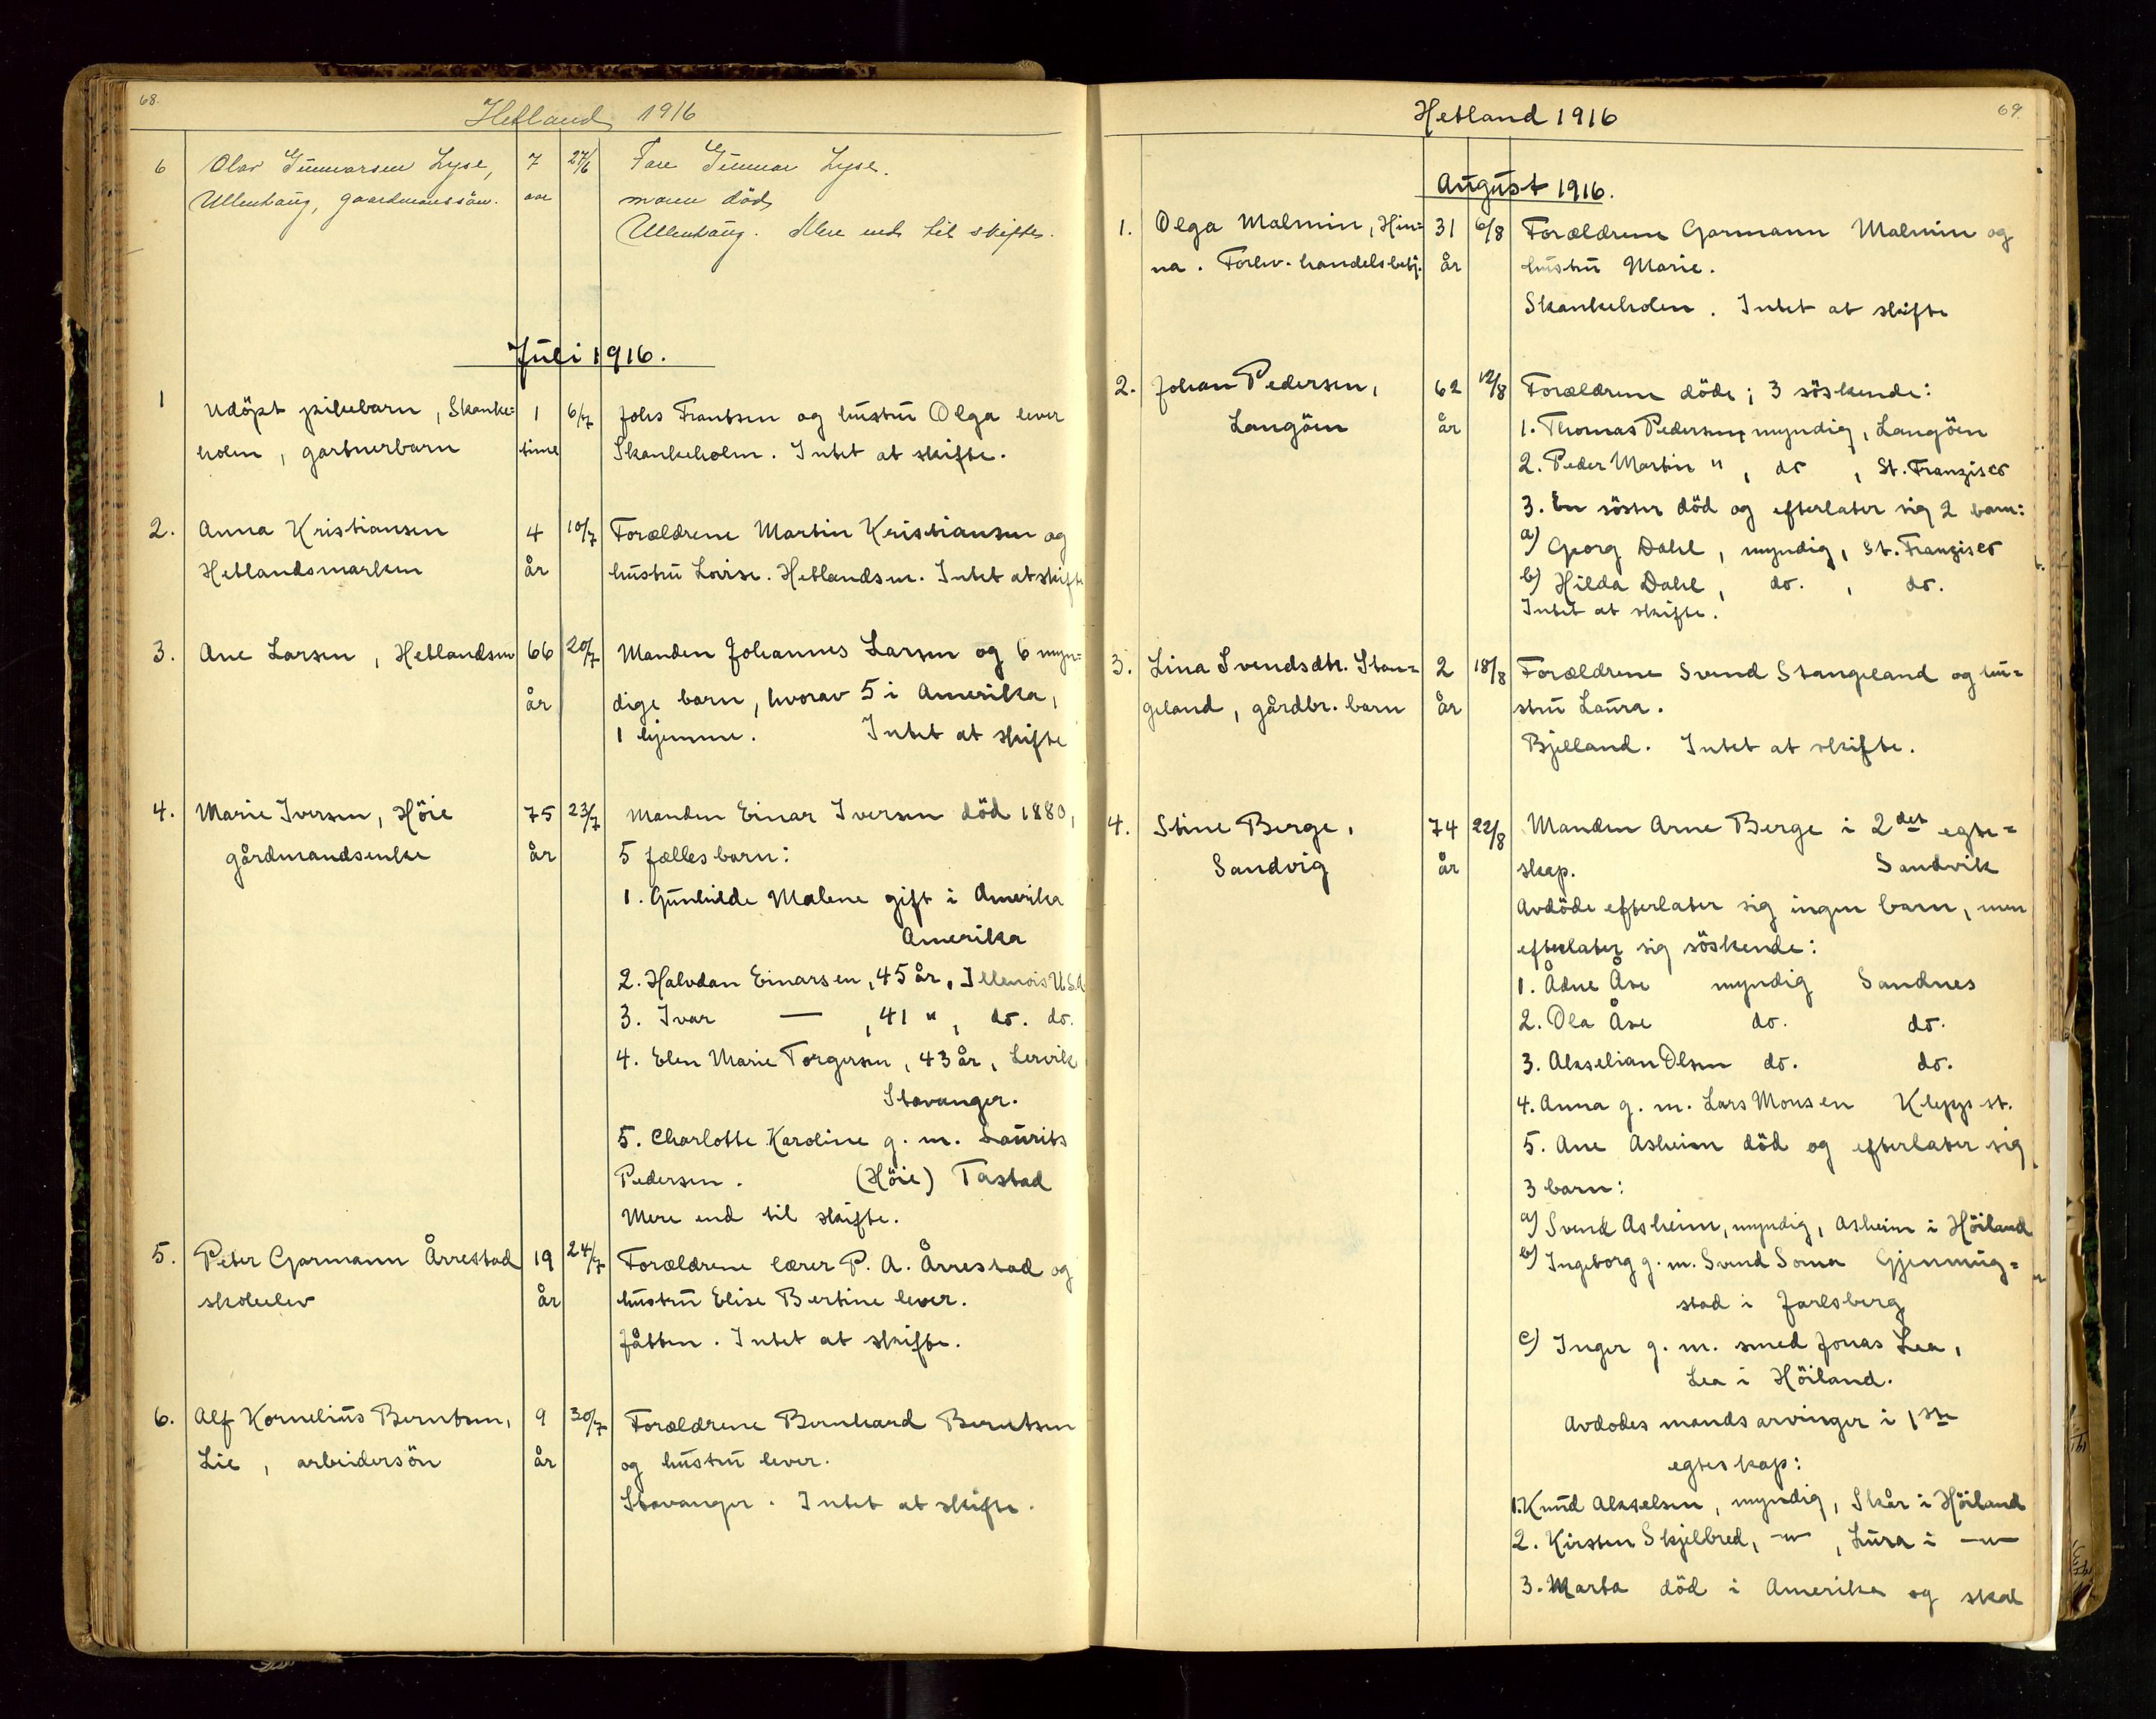 68.
Hetland 1916
6 Olav Gunnarsen Lyse, 7 27/6 Fare Gunnar Lyse.
Ullenhaug, gaardmanssøn. aar moren död
Ullenhaug. Mere end til skifte.
Juli 1916.
1 Udöpt pikebarn, Skanke= 1 6/7 Johs Frantsen og hustru Olga lever
holm, gartnerbarn time Skankeholm. Intet at skifte.
2. Anna Kristiansen 4 10/7 Forældrene Martin Kristiansen og
Hetlandsmarken år hustru Lovise. Hetlandsm. Intet at skifte
3. Ane Larsen, Hetlandsm 66 20/7 Manden Johannes Larsen og 6 myn=
år dige barn, hvorav 5 i Amerika,
1 hjemme. Intet at skifte
4. Marie Iversen, Höie 75 23/7 Manden Einar Iversen död 1880,
gårdmandsenke år 5 fællesbarn:
1. Gunhilde Malene gift i Amerika
Amerika
2. Halvdan Einarsen, 45 år, Illenois USA
3. Ivar — , 41 " , do. do.
4. Elen Marie Torgersen, 43 år, Lervik
Stavanger.
5. Charlotte Karoline g. m. Laurits
Pedersen. (Höie) Tastad
Mere end til skifte.
5. Peter Garmann Årrestad 19 24/7 Forældrene lærer P. A. Årrestad og
skoleelev år hustru Elise Bertine lever.
Jåtten. Intet at skifte.
6. Alf Kornelius Berntsen, 9 30/7 Forældrene Bernhard Berntsen
Lie, arbeidersön år og hustru lever.
Stavanger. Intet at skifte.
69.
Hetland 1916
August 1916.
1. Olga Malmin, Hin= 31 6/8 Forældrene Garmann Malmin og
na. Forhv. handelsbetj. år hustru Marie.
Skankeholen. Intet at skifte
2. Johan Pedersen, 62 12/8 Forældrene döde; 3 söskende:
Langöen år 1. Thomas Pedersen, myndig, Langöen
2. Peder Martin " , do , St. Franzisco
3. En söster död og efterlater sig 2 barn:
a) Georg Dahl, myndig, St. Franzisco
b) Hilda Dahl, do. , do.
Intet at skifte.
3. Lina Svendsdtr. Stan= 2 18/8 Forældrene Svend Stangeland og hu=
geland, gårdbr. barn år stru Laura.
Bjelland. Intet at skifte.
4. Stine Berge, 74 22/8 Manden Arne Berge i 2det egte=
Sandvig år skap. Sandvik
Avdöde efterlater sig ingen barn, men
efterlater sig söskende:
1. Ådne Åse myndig Sandnes
2. Ola Åse do. do.
3. Akselian Olsen do. do.
4. Anna g. m. Lars Monsen Klepp st.
5. Ane Asheim död og efterlater sig
3 barn:
a) Svend Asheim, myndig, Asheim i Höiland
b) Ingeborg g. m. Svend Soma Gjennug=
stad i Jarlsberg
c) Inger g. m. smed Jonas Lea,
Lea i Höiland.
Avdödes mands arvinger i 1ste
egteskap:
1. Knud Akselsen, myndig, Skår i Höiland
2. Kirsten Skjelbred, –"– , Lura i –"–
3. Marta död i Amerika og skal